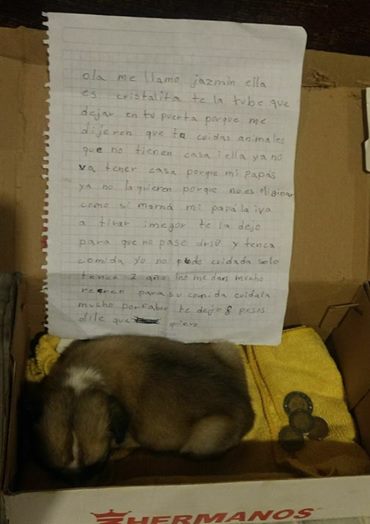 Ola me llamo jazmin ella
es cristalita te la tube que
dejar en tu puerta porque me
dijeron que tu cuidas animales
que no tienen casa i ella ya no
va tener casa porque mi papas
ya no la quieren porque no es
como su mamá mi papá la iva
a tirar imegor te la dejo
para que no pase drio y tenca
comida yo no puedo cuidada solo
tenco 2 años no me dan mucho
para su comida cuidala
mucho porfabor te dejo 8 pesos
dile que quiero
HERMANOS